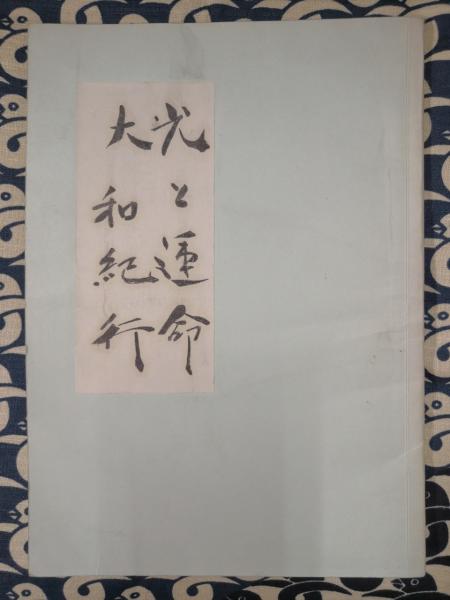 光と運命
大和紀行